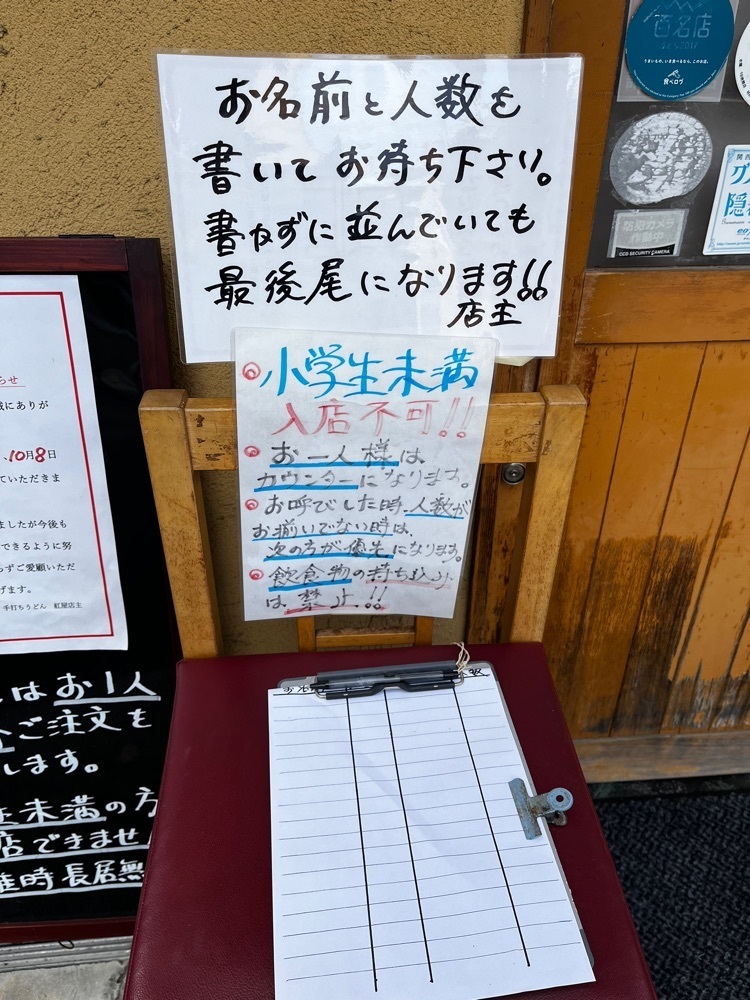 お名前と人数を
書いてお待ち下さい。
書かずに並んでいても
最後尾になります!!
店主
小学生未満
入店不可!!
お一人様は
カウンターになります。
お呼びした時、人数が
お揃いでない時は、
次の方が優先になります。
飲食物の持ち込み
は禁止!!
人数
らせ
にありが
、10月8日
ていただきま
ましたが今後も
できるように努
らずご愛顧いただ
げます。
手打ちうどん 紅屋店主
はお1人
ご注文を
します。
未満の方
店できません
時長居無
百名店
うまいもの、いま食べるなら、このお店。
食べログ
防犯カメラ
作動中
CCD SECURITY CAMERA
関西
隠